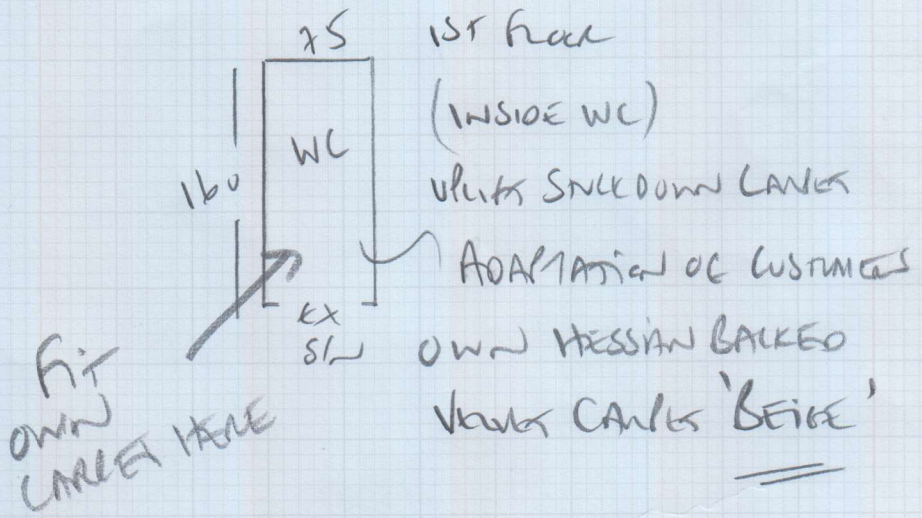 75
1ST FLOOR
(INSIDE WC)
WC
160
UPLIFT STUCKDOWN CARPET
ADAPTATION OF CUSTOMERS
EX
S/N
OWN HESSIAN BACKED
VELVET CARPET 'BEIGE'
FIT
OWN
CARPET HERE